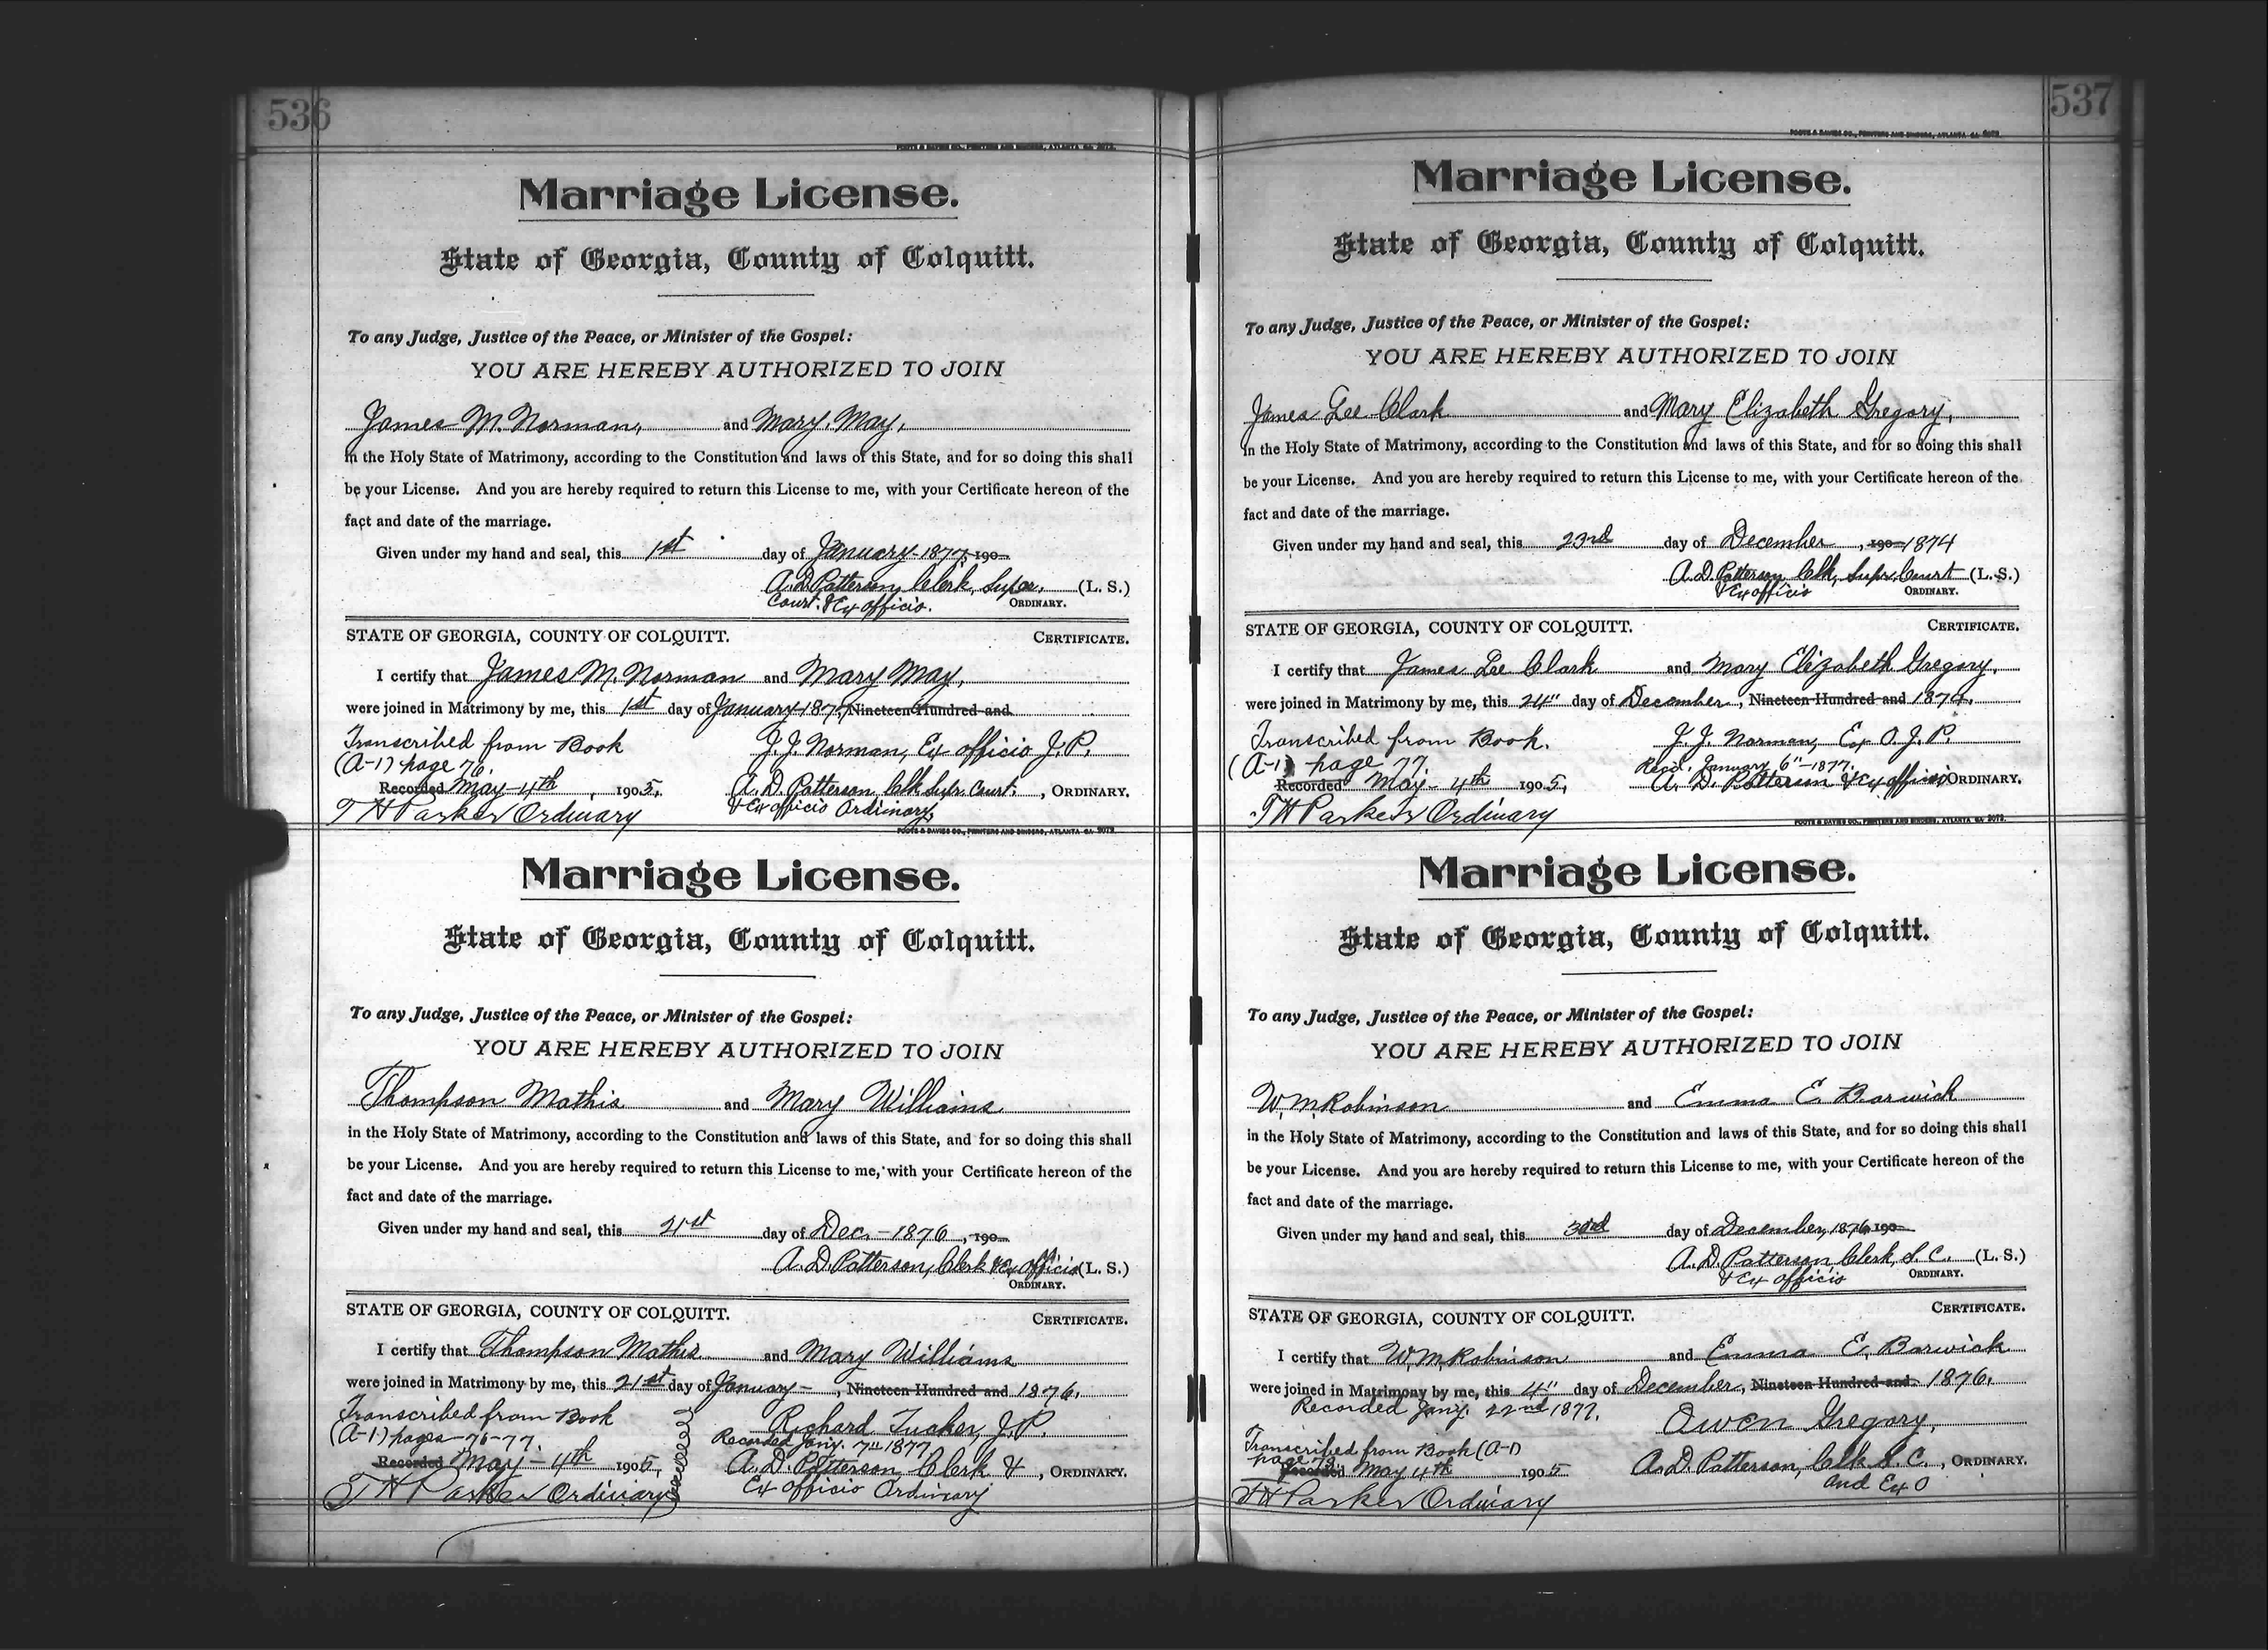 536
FOOTE & DAVIES CO., PRINTERS AND BINDERS, ATLANTA GA
Marriage License.
State of Georgia, County of Colquitt.
To any Judge, Justice of the Peace, or Minister of the Gospel:
YOU ARE HEREBY AUTHORIZED TO JOIN
James M. Norman, and Mary. May,
in the Holy State of Matrimony, according to the Constitution and laws of this State, and for so doing this shall
be your License. And you are hereby required to return this License to me, with your Certificate hereon of the
fact and date of the marriage.
Given under my hand and seal, this 1st day of January-1877, 190
A. D. Patterson, Clerk, Super, (L. S.)
Court. & Ex officio. ORDINARY.
STATE OF GEORGIA, COUNTY OF COLQUITT. CERTIFICATE.
I certify that James M. Norman and Mary May,
were joined in Matrimony by me, this 1st day of January 1877, Nineteen Hundred and
Transcribed from Book J. J. Norman, Ex officio J. P.
(A-1) page 76.
Recorded May-4th, 1905, A. D. Patterson Clk Supr. Court. , ORDINARY.
T H Parker Ordinary & Ex officio Ordinary,
FOOTE & DAVIES CO., PRINTERS AND BINDERS, ATLANTA GA
Marriage License.
State of Georgia, County of Colquitt.
To any Judge, Justice of the Peace, or Minister of the Gospel:
YOU ARE HEREBY AUTHORIZED TO JOIN
Thompson Mathis and Mary Williams
in the Holy State of Matrimony, according to the Constitution and laws of this State, and for so doing this shall
be your License. And you are hereby required to return this License to me, with your Certificate hereon of the
fact and date of the marriage.
Given under my hand and seal, this 21st day of Dec. - 1876, 190
A. D. Patterson, Clerk & Ex officio (L. S.)
ORDINARY.
STATE OF GEORGIA, COUNTY OF COLQUITT. CERTIFICATE.
I certify that Thompson Mathis and Mary Williams
were joined in Matrimony by me, this 21st day of January - , Nineteen Hundred and 1876,
Transcribed from Book Richard Tucker, J. P.
(A-1) pages-76-77. Recorded Jany. 7th 1877
Recorded May-4th 1905, A. D. Patterson Clerk & , ORDINARY.
T H Parker Ordinary Ex officio Ordinary
537
FOOTE & DAVIES CO., PRINTERS AND BINDERS, ATLANTA GA
Marriage License.
State of Georgia, County of Colquitt.
To any Judge, Justice of the Peace, or Minister of the Gospel:
YOU ARE HEREBY AUTHORIZED TO JOIN
James Lee Clark and Mary Elizabeth Gregory,
in the Holy State of Matrimony, according to the Constitution and laws of this State, and for so doing this shall
be your License. And you are hereby required to return this License to me, with your Certificate hereon of the
fact and date of the marriage.
Given under my hand and seal, this 23rd day of December, 190 1874
A. D. Patterson Clk, Supr, Court (L. S.)
& Ex officio ORDINARY.
STATE OF GEORGIA, COUNTY OF COLQUITT. CERTIFICATE.
I certify that James Lee Clark and Mary Elizabeth Gregory,
were joined in Matrimony by me, this 24" day of December, Nineteen Hundred and 1874,
Transcribed from Book. J. J. Norman, Ex O. J. P.
(A-1) page 77. Recd. January 6"-1877.
Recorded May - 4th 1905, A. D. Patterson & Ex officio ORDINARY.
T H Parker Ordinary
FOOTE & DAVIES CO., PRINTERS AND BINDERS, ATLANTA GA
Marriage License.
State of Georgia, County of Colquitt.
To any Judge, Justice of the Peace, or Minister of the Gospel:
YOU ARE HEREBY AUTHORIZED TO JOIN
W. M. Robinson and Emma E. Barwick
in the Holy State of Matrimony, according to the Constitution and laws of this State, and for so doing this shall
be your License. And you are hereby required to return this License to me, with your Certificate hereon of the
fact and date of the marriage.
Given under my hand and seal, this 3rd day of December, 1876, 190
A. D. Patterson Clerk, S. C. (L. S.)
& Ex officio ORDINARY.
STATE OF GEORGIA, COUNTY OF COLQUITT. CERTIFICATE.
I certify that W. M. Robinson and Emma E. Barwick
were joined in Matrimony by me, this 4" day of December, Nineteen Hundred and 1876,
Recorded Jany. 22nd 1877. Owen Gregory,
Transcribed from Book (A-1)
page
Recorded May 4th 1905 A. D. Patterson, Clk S. C. , ORDINARY.
T H Parker Ordinary and Ex O